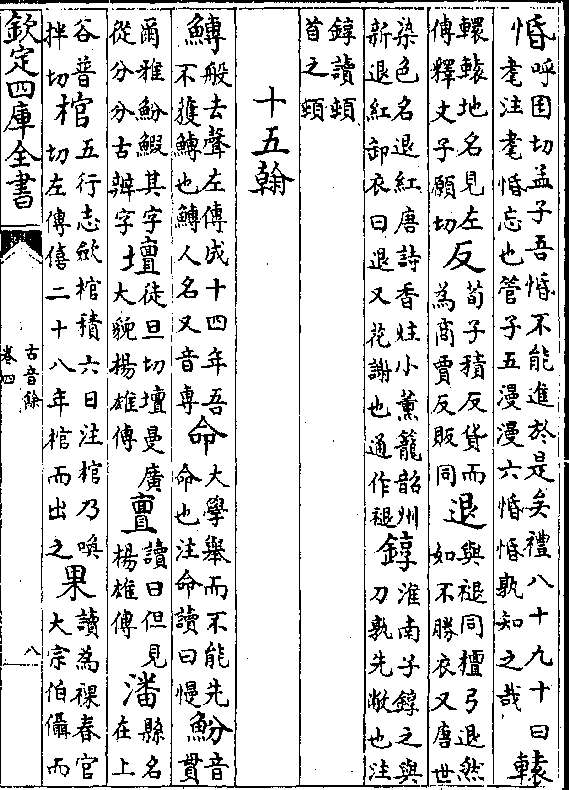 惛呼困切孟子吾惛不能進於是矣禮八十九十曰耄注耄惛忘也管子五漫漫六惛惛孰知之哉轅
轘轅地名見左傳釋文子願切反荀子積反貨而為商賈反販同退與褪同檀弓退然如不勝衣又唐世
染色名退紅唐詩香炷小薰籠韶州新退紅卸衣曰退又花謝也通作褪錞淮南子錞之與刀孰先敝也注
錞讀頓首之頓
十五翰
鱄般去聲左傳成十四年吾不獲鱄也鱄人名又音專命大學舉而不能先命也注命讀曰慢魵音貫
爾雅魵鰕其字從分分古辨字壇徒旦切壇曼廣大貌楊雄傳亶讀曰但見楊雄傳潘縣名在上
谷普拌切棺五行志斂棺積六日注棺乃喚切左傳僖二十八年棺而出之果讀為祼春官大宗伯攝而
欽定四庫全書
古音餘
卷四
八